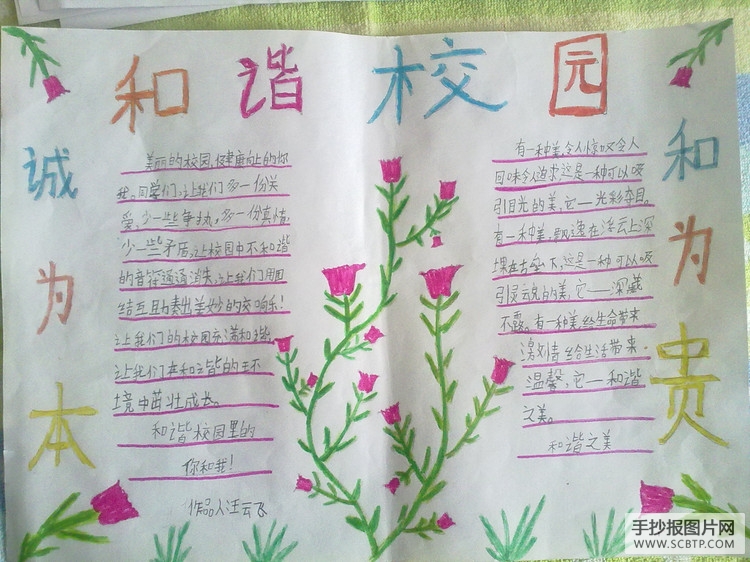 和谐校园
诚为本
和为贵
美丽的校园,健康向上的你
我。同学们,让我们多一份关
爱,少一些争执,多一份真情,
少一些矛盾,让校园中不和谐
的音符通通消失,让我们用团
结互助奏出美妙的交响乐!
让我们的校园充满和谐。
让我们在和谐的环
境中茁壮成长。
和谐校园里的
你和我!
作品人汪云飞
有一种美,令人惊叹令人
回味令人追求这是一种可以吸
引目光的美,它——光彩夺目。
有一种美,飘逸在浮云上深
埋在古垒下,这是一种可以吸
引灵魂的美,它——深藏
不露。有一种美,给生命带来
激情给生活带来
温馨,它——和谐
之美。
和谐之美
手抄报图片网
WWW.SCBTP.COM